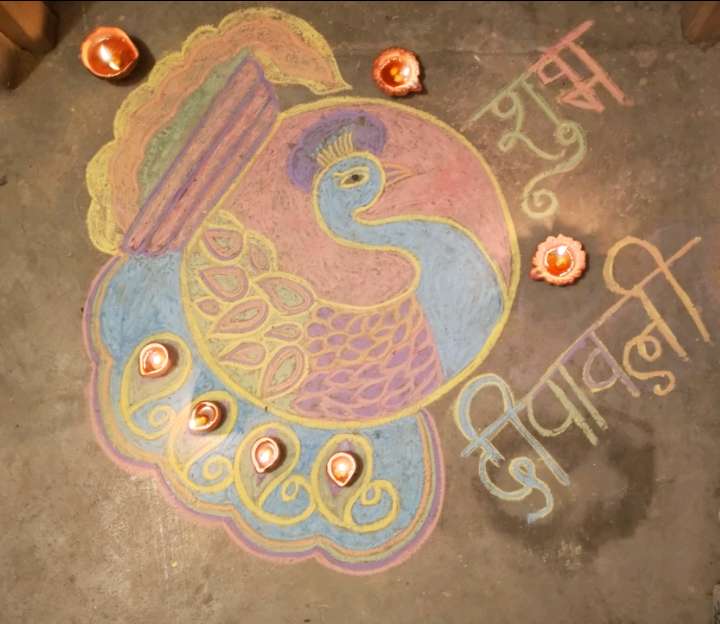 शुभ
दीपावली